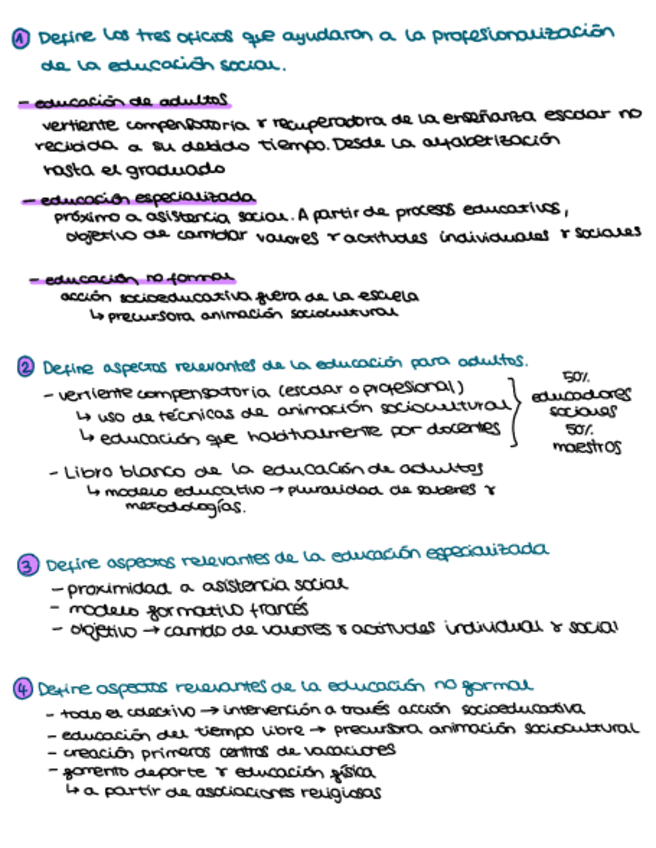 ① Define los tres oficios que ayudaron a la profesionalización
de la educación social.
- educación de adultos
vertiente compensatoria y recuperadora de la enseñanza escolar no
recibida a su debido tiempo. Desde la alfabetización
hasta el graduado
- educación especializada
próximo a asistencia social. A partir de procesos educativos,
objetivo de cambiar valores y actitudes individuales y sociales
- educación no formal
acción socioeducativa fuera de la escuela
↳ precursora animación sociocultural
② Define aspectos relevantes de la educación para adultos.
- vertiente compensatoria (escolar o profesional)
↳ uso de técnicas de animación sociocultural
↳ educación que habitualmente por docentes
50%
educadores
sociales
50%
maestros
- Libro blanco de la educación de adultos
↳ modelo educativo → pluralidad de saberes y
metodologías.
③ Define aspectos relevantes de la educación especializada
- proximidad a asistencia social
- modelo formativo francés
- objetivo → cambio de valores y actitudes individual y social
④ Define aspectos relevantes de la educación no formal
- todo el colectivo → intervención a través acción socioeducativa
- educación del tiempo libre → precursora animación sociocultural
- creación primeros centros de vacaciones
- fomento deporte y educación física
↳ a partir de asociaciones religiosas